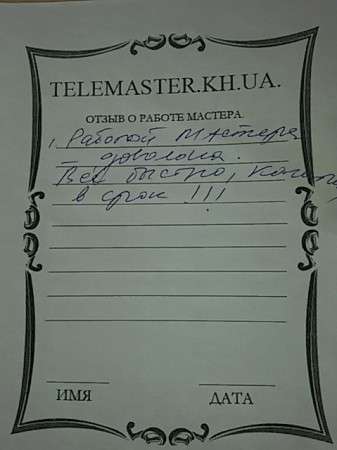 TELEMASTER.KH.UA.
ОТЗЫВ О РАБОТЕ МАСТЕРА.
Работой мастера
довольна.
Все быстро,
в срок !!!
ИМЯ
ДАТА